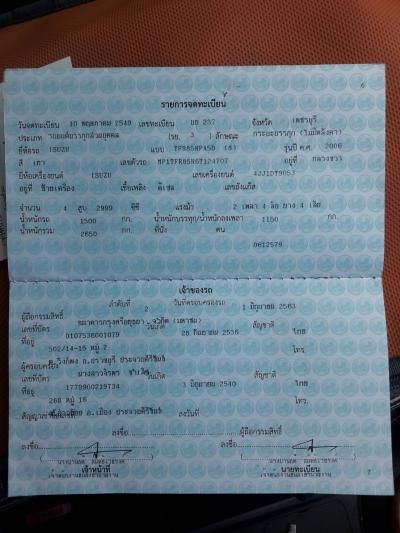 6
รายการจดทะเบียน
วันจดทะเบียน 10 พฤษภาคม 2549 เลขทะเบียน บย 237 จังหวัด เพชรบุรี
ประเภท รถยนต์บรรทุกส่วนบุคคล (รย. 3 ) ลักษณะ กระบะบรรทุก (ไม่มีหลังคา)
ยี่ห้อรถ ISUZU แบบ TFR85HPASD (8) รุ่นปี ค.ศ. 2006
สี เทา เลขตัวรถ MP1TFR85H6T124707 อยู่ที่ กลางขวา
ยี่ห้อเครื่องยนต์ ISUZU เลขเครื่องยนต์ 4JJ1DT9053
อยู่ที่ ซ้ายเครื่อง เชื้อเพลิง ดีเซล เลขถังแก๊ส
จำนวน 4 สูบ 2999 ซีซี แรงม้า 2 เพลา 4 ล้อ ยาง 4 เส้น
น้ำหนักรถ 1500 กก. น้ำหนักบรรทุก/น้ำหนักลงเพลา 1150 กก.
น้ำหนักรวม 2650 กก. ที่นั่ง คน
0612579
เจ้าของรถ
ลำดับที่ 2 วันที่ครอบครองรถ 1 มิถุนายน 2563
ผู้ถือกรรมสิทธิ์ ธนาคารกรุงศรีอยุธยา จำกัด (มหาชน)
เลขที่บัตร 0107536001079 วันเกิด 28 กันยายน 2536 สัญชาติ ไทย
ที่อยู่ 502/14-15 หมู่ 7 โทร.
ต.วังก์พง อ.ปราณบุรี ประจวบคีรีขันธ์
ผู้ครอบครอง
เลขที่บัตร 1779900219734 วันเกิด 3 มิถุนายน 2540 สัญชาติ ไทย
ที่อยู่ 268 หมู่ 16 โทร.
อ.เมือง ประจวบคีรีขันธ์
ลงวันที่
ลงชื่อ ผู้ถือกรรมสิทธิ์
ลงชื่อ ลงชื่อ
เจ้าหน้าที่ นายทะเบียน
7